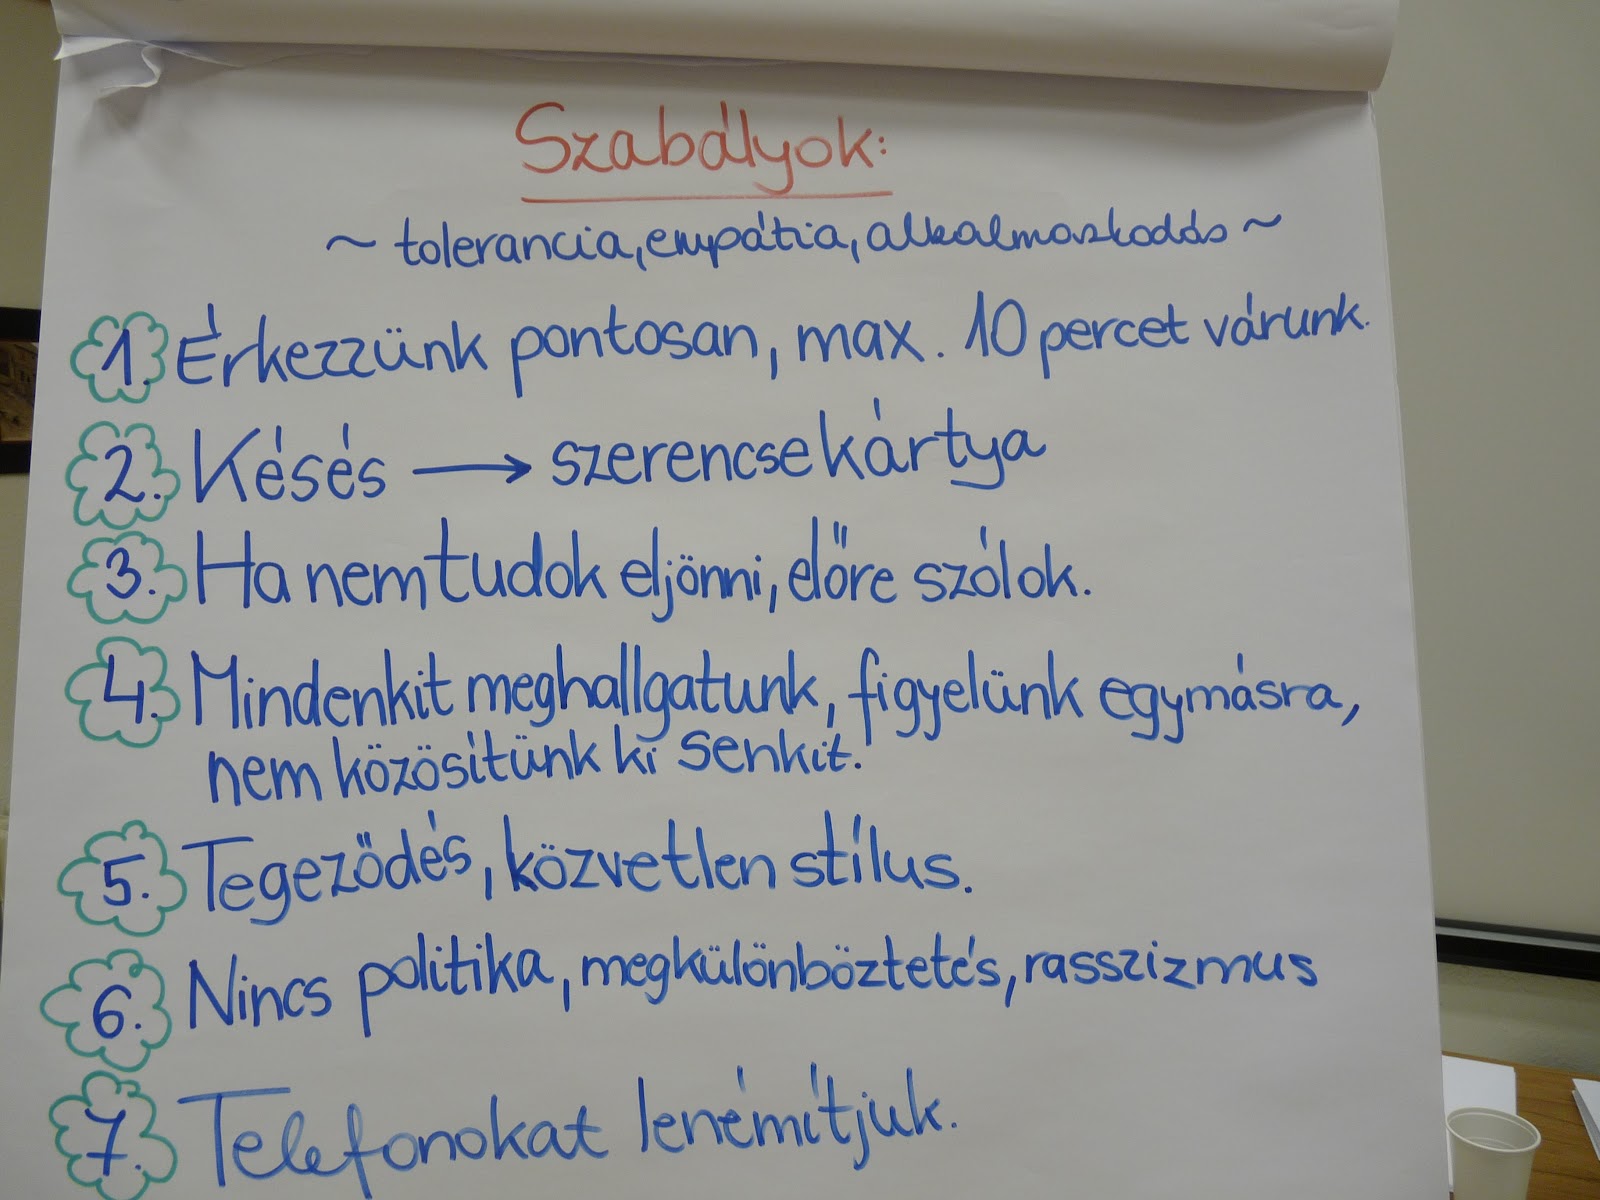 Szabályok:
~ tolerancia, empátia, alkalmazkodás ~
1. Érkezzünk pontosan, max. 10 percet várunk.
2. Késés → szerencsekártya
3. Ha nem tudok eljönni, előre szólok.
4. Mindenkit meghallgatunk, figyelünk egymásra,
nem közösítünk ki senkit.
5. Tegeződés, közvetlen stílus.
6. Nincs politika, megkülönböztetés, rasszizmus
7. Telefonokat lenémítjuk.